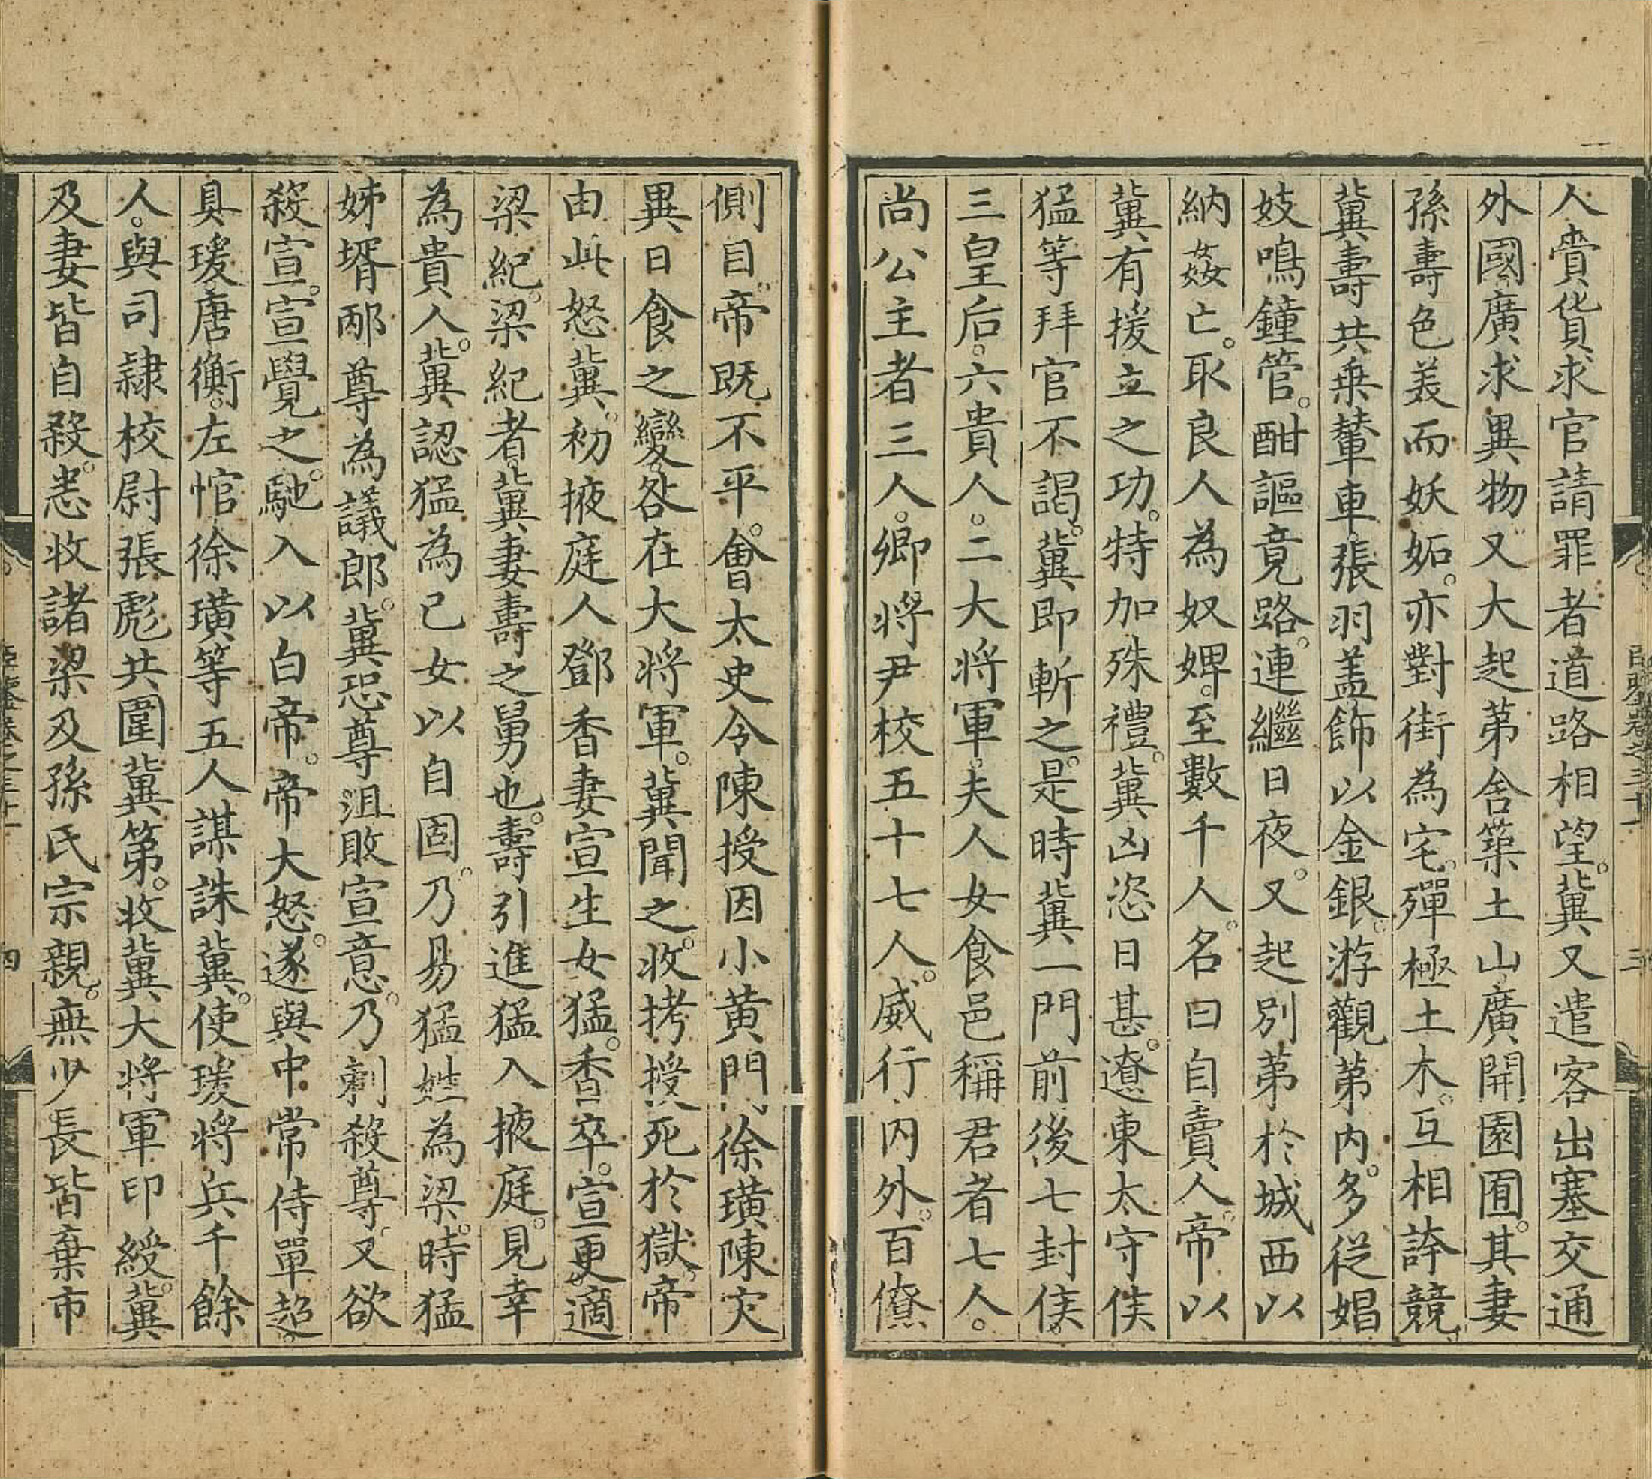 人賫貨求官請罪者道路相望。冀又遣客出塞交通
外國廣求異物又大起第舍築土山廣開園囿。其妻
孫壽色美而妖妬。亦對街為宅。殫極土木。互相誇競。
冀壽共乗輦車。張羽盖飾以金銀。游觀第内。多從娼
妓鳴鐘管。酣謳竟路。連繼日夜。又起别第於城西以
納姦亡。取良人為奴婢。至數千人。名曰自賣人。帝以
冀有援立之功。特加殊禮。冀凶恣日甚。遼東太守侯
猛等拜官不謁。冀即斬之。是時冀一門前後七封侯。
三皇后。六貴人。二大將軍。夫人女食邑稱君者七人。
尚公主者三人。卿將尹校五十七人。威行内外。百僚
側目。帝既不平。會太史令陳授因小黄門徐璜陳灾
異日食之變。咎在大將軍。冀聞之。收拷授死於獄。帝
由此怒冀。初掖庭人鄧香妻宣生女猛。香卒。宣更適
梁紀。梁紀者。冀妻壽之舅也。壽引進猛入掖庭。見幸
為貴人。冀認猛為己女以自固。乃易猛姓為梁。時猛
姊壻邴尊為議郎。冀恐尊沮敗宣意。乃刺殺尊。又欲
殺宣。宣覺之。馳入以白帝。帝大怒。遂與中常侍單超。
具瑗唐衡。左悺徐璜等五人謀誅冀。使瑗將兵千餘
人。與司隸校尉張彪共圍冀第。收冀大將軍印綬。冀
及妻皆自殺。悉收諸梁及孫氏宗親。無少長皆棄市
四